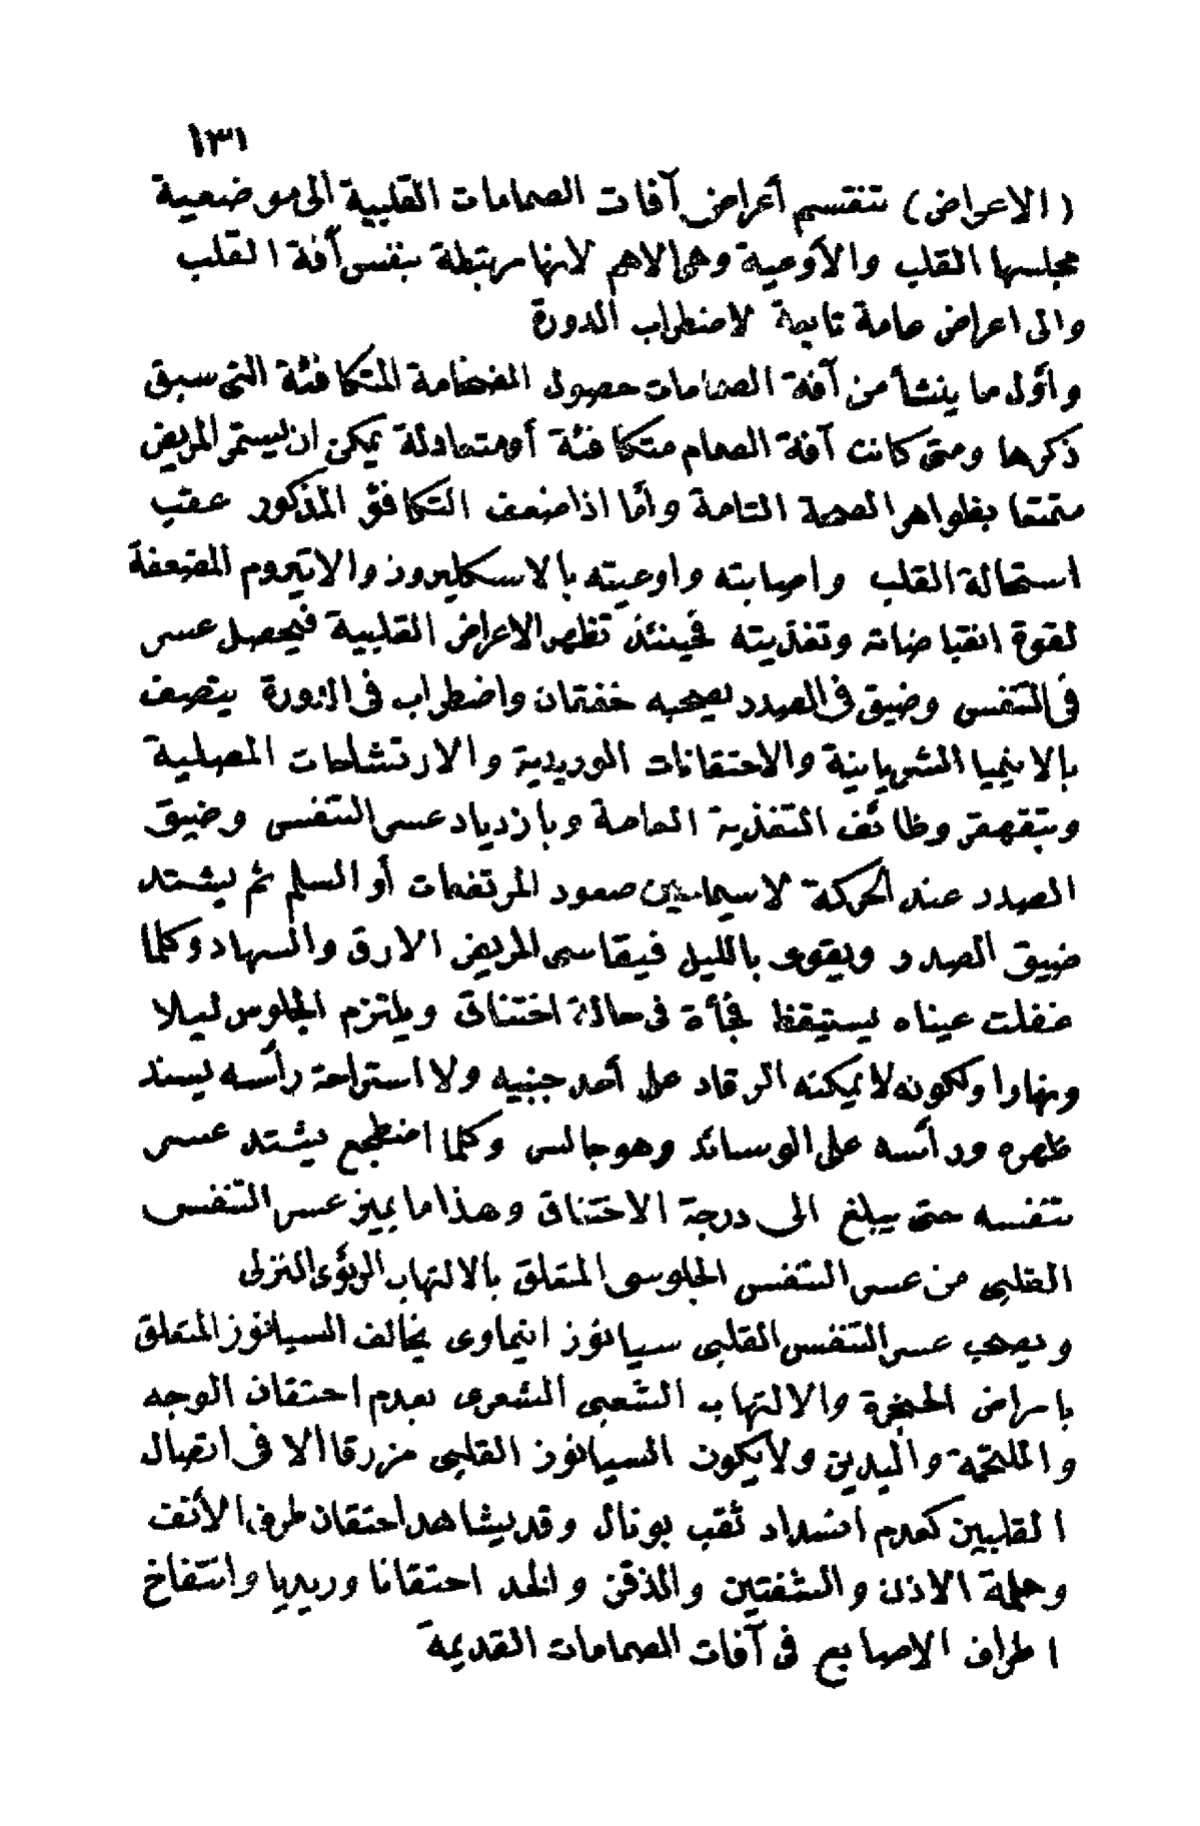 ١٣١
(الاعراض) تنقسم أعراض آفات الصمامات القلبية الى موضعية
مجلسها القلب والأوعية وهى الاهم لانها مرتبطة بنفس آفة القلب
والى اعراض عامة تابعة لاضطراب الدورة
وأول ما ينشأ من آفة الصمامات حصول الضخامة المتكافئة التى سبق
ذكرها ومتى كانت آفة الصمام متكافئة أومتعادلة يمكن ان يستمر المريض
متمتعا بظواهر الصحة التامة وأما اذا ضعف التكافؤ المذكور عقب
استحالة القلب واصابته واوعيته بالاسكليروز والاتيروم المضعفة
لقوة انقباضاته وتغذيته فحينئذ تظهر الاعراض القلبية فيحصل عسر
فى التنفس وضيق فى الصدر يصحبه خفقان واضطراب فى الدورة يتصف
بالانيميا الشريانية والاحتقانات الوريدية والارتشاحات المصلية
وبتقهقر وظائف التغذية العامة وبازدياد عسر التنفس وضيق
الصدر عند الحركة لاسيما حين صعود المرتفعات أو السلم ثم يشتد
ضيق الصدر ويقوى بالليل فيقاسى المريض الارق والسهاد وكلما
غفلت عيناه يستيقظ فجأة فى حالة اختناق ويلتزم الجلوس ليلا
ونهارا ولكونه لا يمكنه الرقاد على أحد جنبيه ولا استراحة رأسه يسند
ظهره ورأسه على الوسائد وهو جالس وكلما اضطجع يشتد عسر
تنفسه حتى يبلغ الى درجة الاختناق وهذا ما يميز عسر التنفس
القلبى من عسر التنفس الجلوسى المتعلق بالالتهاب الرئوى النزلى
ويصحب عسر التنفس القلبى سيانوز انيماوى يخالف السيانوز المتعلق
بامراض الحنجرة والالتهاب الشعبى الشعرى بعدم احتقان الوجه
والملتحمة واليدين ولا يكون السيانوز القلبى مزرقا الا فى اتصال
القلبين كعدم انسداد ثقب بوتال وقد يشاهد احتقان طرف الأنف
وحلمة الاذن والشفتين والذقن والخد احتقانا وريديا وانتفاخ
اطراف الاصابع فى آفات الصمامات القديمة